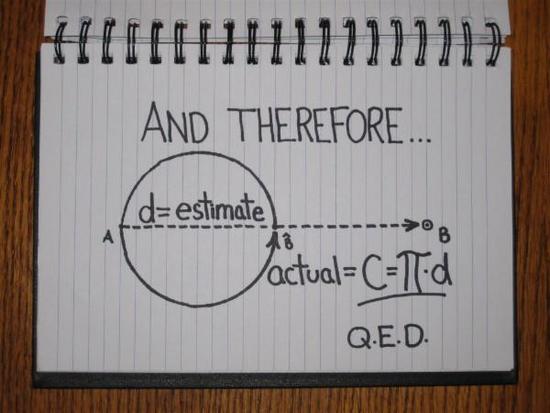 AND THEREFORE...
d=estimate
A
B̂
B
actual=C=π·d
Q.E.D.